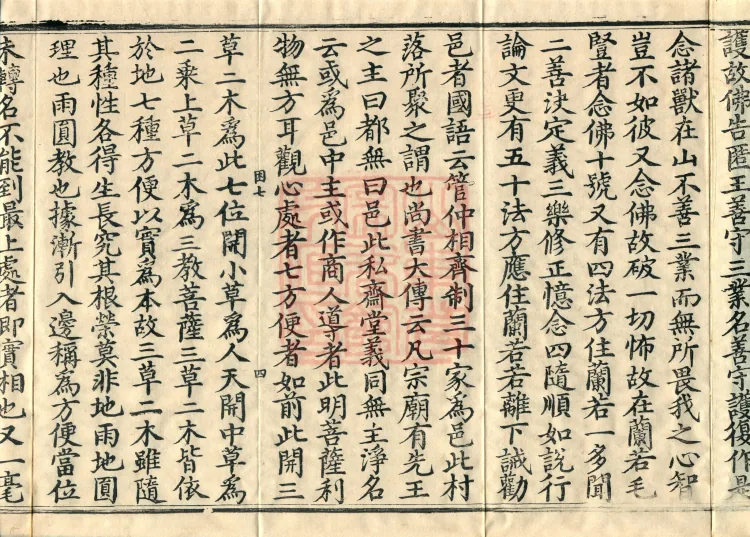 護故佛告匿王善守三業名善守護復作是
念諸獸在山不善三業而無所畏我之心智
豈不如彼又念佛故破一切怖故在蘭若毛
豎者念佛十號又有四法方住蘭若一多聞
二善決定義三樂修正憶念四隨順如說行
論文更有五十法方應住蘭若若離下誡勸
邑者國語云管仲相齊制三十家為邑此村
落所聚之謂也尚書大傳云凡宗廟有先王
之主曰都無曰邑此私齋堂義同無主淨名
云或為邑中主或作商人導者此明菩薩利
物無方耳觀心處者七方便者如前此開三
因七
四
草二木為此七位開小草為人天開中草為
二乘上草二木為三教菩薩三草二木皆依
於地七種方便以實為本故三草二木雖隨
其種性各得生長究其根榮莫非地雨地圓
理也雨圓教也據漸引入邊稱為方便當位
未轉名不能到最上處者即實相也又一毫